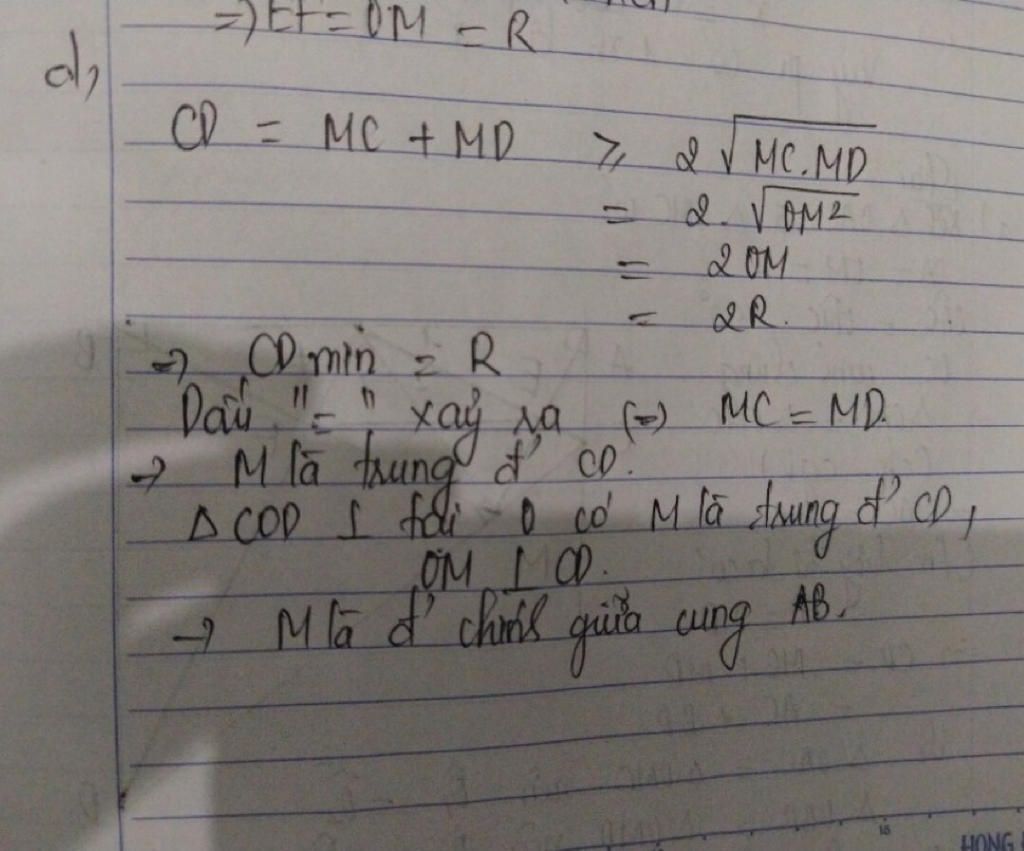 =) EF = OM = R
d,
CD = MC + MD ≥ 2√MC.MD
= 2.√OM²
= 2OM
= 2R.
=) CD min = R
Dấu "=" xảy ra (=) MC = MD.
→ M là trung đ' CD.
Δ COD ⊥ tại O có M là trung đ' CD,
OM ⊥ CD.
→ M là đ' chính giữa cung AB.
15
HONG